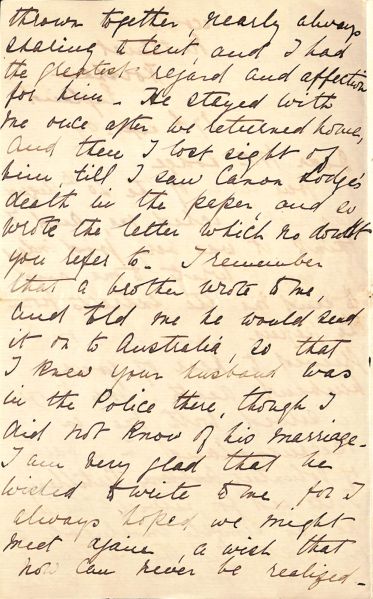 thrown together, nearly always
sharing a tent, and I had
the greatest regard and affection
for him - He stayed with
me once after we returned home,
and then I lost sight of
him, till I saw Canon Lodge's
death in the paper, and so
wrote the letter which no doubt
you refer to - I remember
that a brother wrote to me,
and told me he would send
it on to Australia, so that
I knew your husband was
in the Police there, though I
did not know of his marriage -
I am very glad that he
wished to write to me, for I
always hoped we might
meet again, a wish that
now can never be realized -